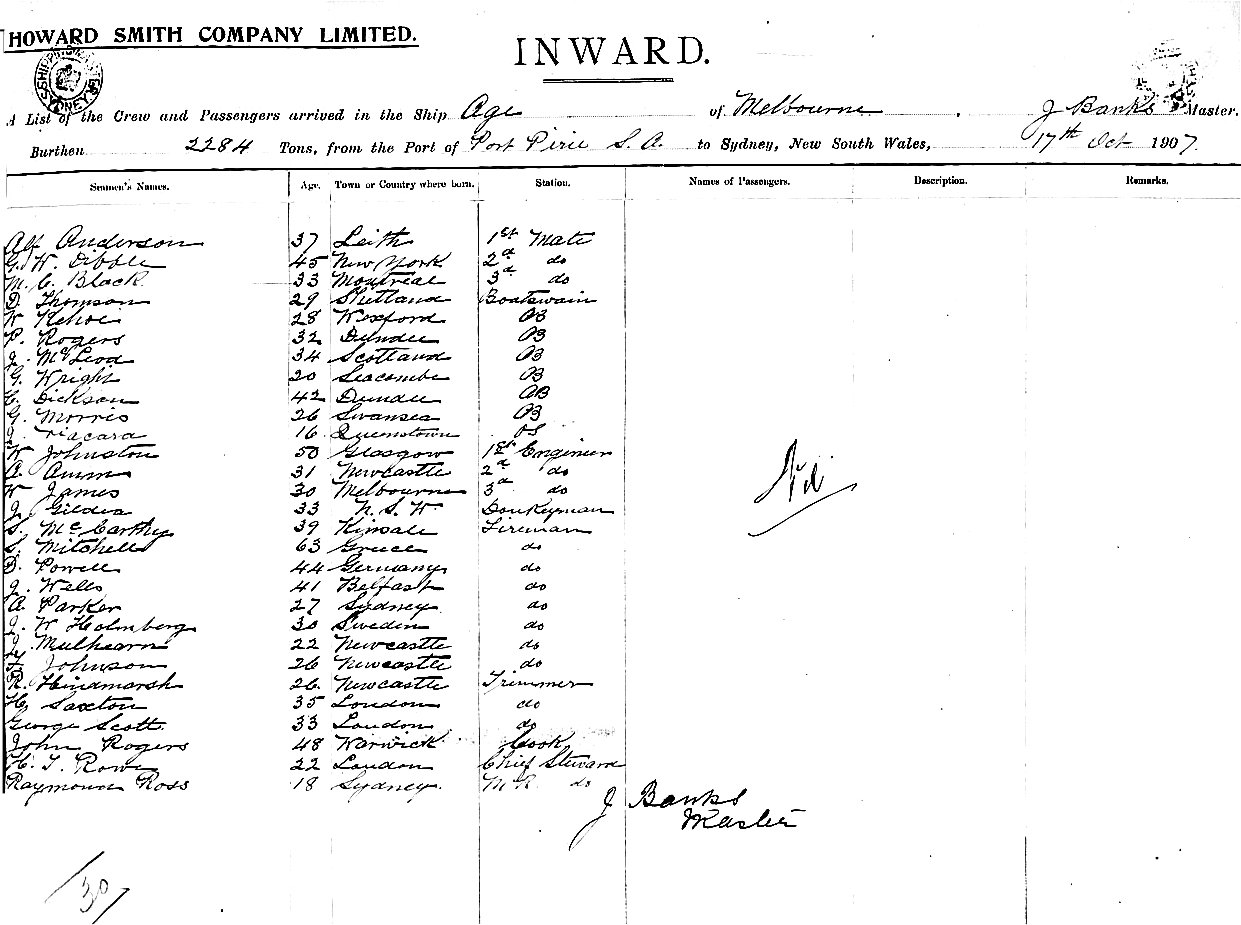 HOWARD SMITH COMPANY LIMITED.
INWARD.
SHIPPING MASTER SYDNEY
A List of the Crew and Passengers arrived in the Ship Age of Melbourne, J Banks Master.
Burthen 2284 Tons, from the Port of Port Pirie S. A. to Sydney, New South Wales, 17th Oct 1907
Seamen's Names. Age. Town or Country where born. Station. Names of Passengers. Description. Remarks.
Alf Anderson 37 Leith 1st Mate
G. W. Dibble 45 New York 2d do
M. C. Black 33 Montreal 3d do
D. Thomson 29 Shetland Boatswain
W Kehoe 28 Wexford AB
P. Rogers 32 Dundee AB
J. McLeod 34 Scotland AB
G. Wright 20 Seacombe AB
Dickson 42 Dundee AB
G. Morris 26 Swansea AB
16 Queenstown OS
W Johnston 50 Glasgow 1st Engineer
A. 31 Newcastle 2d do
W James 30 Melbourne 3d do
J. Gildea 33 N. S. W. Donkeyman
S. McCarthy 39 Kinsale Fireman
S. Mitchell 63 Greece do
D. Powell 44 Germany do
J. Wells 41 Belfast do
A. Parker 27 Sydney do
J. W Holmberg 30 Sweden do
J. Mulhearn 22 Newcastle do
F. Johnson 26 Newcastle do
R. Hindmarsh 26 Newcastle Trimmer
H. Saxton 35 London do
George Scott 33 London do
John Rogers 48 Warwick Cook
H. T. Rowe 22 London Chief Steward
Raymond Ross 18 Sydney M. R. do
Nil
J Banks
Master
30